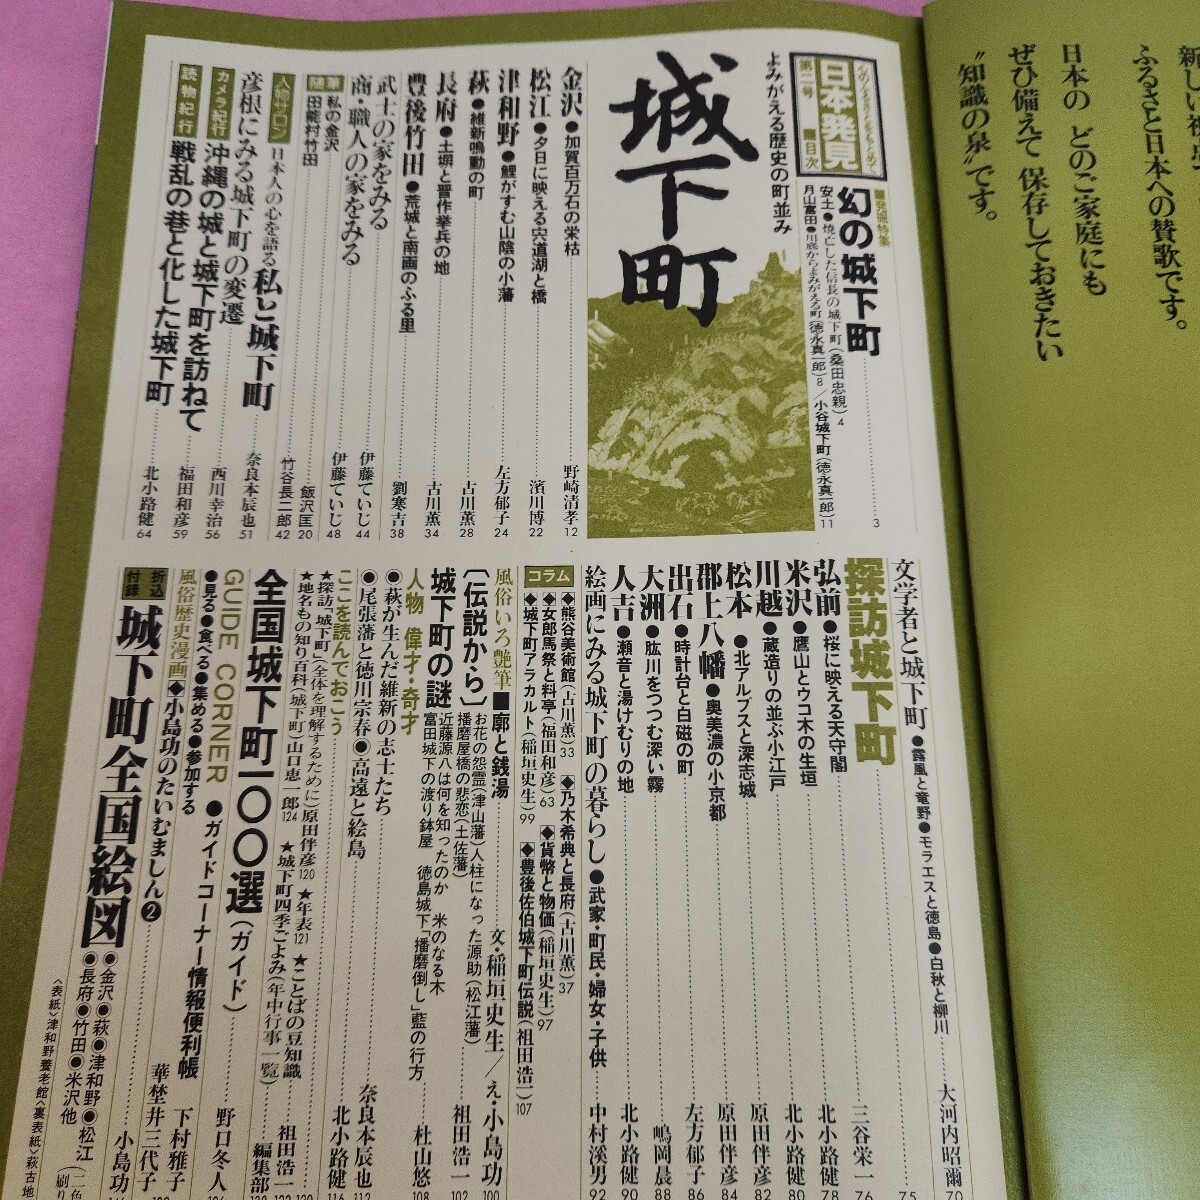 新しい視点
ふるさと日本への賛歌です。
日本の どのご家庭にも
ぜひ備えて 保存しておきたい
“知識の泉”です。
心のふるさとをもとめて
日本発見
第二号 ■目次
よみがえる歴史の町並み
城下町
■発掘特集
幻の城下町 3
安土●焼亡した信長の城下町(桑田忠親)4
月山富田●川底からよみがえる町(徳永真一郎)8/小谷城下町(徳永真一郎)11
金沢●加賀百万石の栄枯 野崎清孝 12
松江●夕日に映える宍道湖と橋 濱川博 22
津和野●鯉がすむ山陰の小藩 左方郁子 24
萩●維新鳴動の町 古川薫 28
長府●土塀と晋作挙兵の地 古川薫 34
豊後竹田●荒城と南画のふる里 劉寒吉 38
武士の家をみる 伊藤ていじ 44
商・職人の家をみる 伊藤ていじ 48
随筆 私の金沢 飯沢匡 20
田能村竹田 竹谷長二郎 42
人物サロン 日本人の心を語る 私と城下町 奈良本辰也 51
彦根にみる城下町の変遷 西川幸治 56
カメラ紀行 沖縄の城と城下町を訪ねて 福田和彦 59
読物紀行 戦乱の巷と化した城下町 北小路健 64
文学者と城下町●露風と竜野●モラエスと徳島●白秋と柳川 大河内昭爾 70
探訪城下町 75
弘前●桜に映える天守閣 三谷栄一 76
米沢●鷹山とウコ木の生垣 北小路健 78
川越●蔵造りの並ぶ小江戸 北小路健 80
松本●北アルプスと深志城 原田伴彦 82
郡上八幡●奥美濃の小京都 原田伴彦 84
出石●時計台と白磁の町 左方郁子 86
大洲●肱川をつつむ深い霧 嶋岡晨 88
人吉●瀬音と湯けむりの地 北小路健 90
絵画にみる城下町の暮らし●武家・町民・婦女・子供 中村渓男 92
コラム
◆熊谷美術館(古川薫)33 ◆乃木希典と長府(古川薫)37
◆女郎馬祭と料亭(福田和彦)63 ◆貨幣と物価(稲垣史生)97
◆城下町アラカルト(稲垣史生)99 ◆豊後佐伯城下町伝説(祖田浩一)107
風俗いろ艶筆■廓と銭湯 文・稲垣史生/え・小島功 100
〔伝説から〕
城下町の謎
お花の怨霊(津山藩)人柱になった源助(松江藩)
播磨屋橋の悲恋(土佐藩) 祖田浩一 102
近藤源八は何を知ったのか 米のなる木
富田城下の渡り鉢屋 徳島城下「播磨倒し」藍の行方 杜山悠 108
人物 偉才・奇才
●萩が生んだ維新の志士たち 奈良本辰也 112
●尾張藩と徳川宗春●高遠と絵島 北小路健 116
ここを読んでおこう
★探訪「城下町」(全体を理解するために)原田伴彦 120 ★年表 121 ★ことばの豆知識 祖田浩一
★地名もの知り百科(城下町)山口恵一郎 124 ★城下町四季ごよみ(年中行事一覧) 編集部
全国城下町一〇〇選(ガイド) 野口冬人
GUIDE CORNER ●ガイドコーナー情報便利帳 下村雅子
●見る●食べる●集める●参加する 華埜井三代子
風俗歴史漫画◆小島功のたいむましん❷ 小島功
折込付録 城下町全国絵図 ●金沢●萩●津和野●松江
●長府●竹田●米沢他
〈表紙〉津和野養老館〈裏表紙〉萩古地